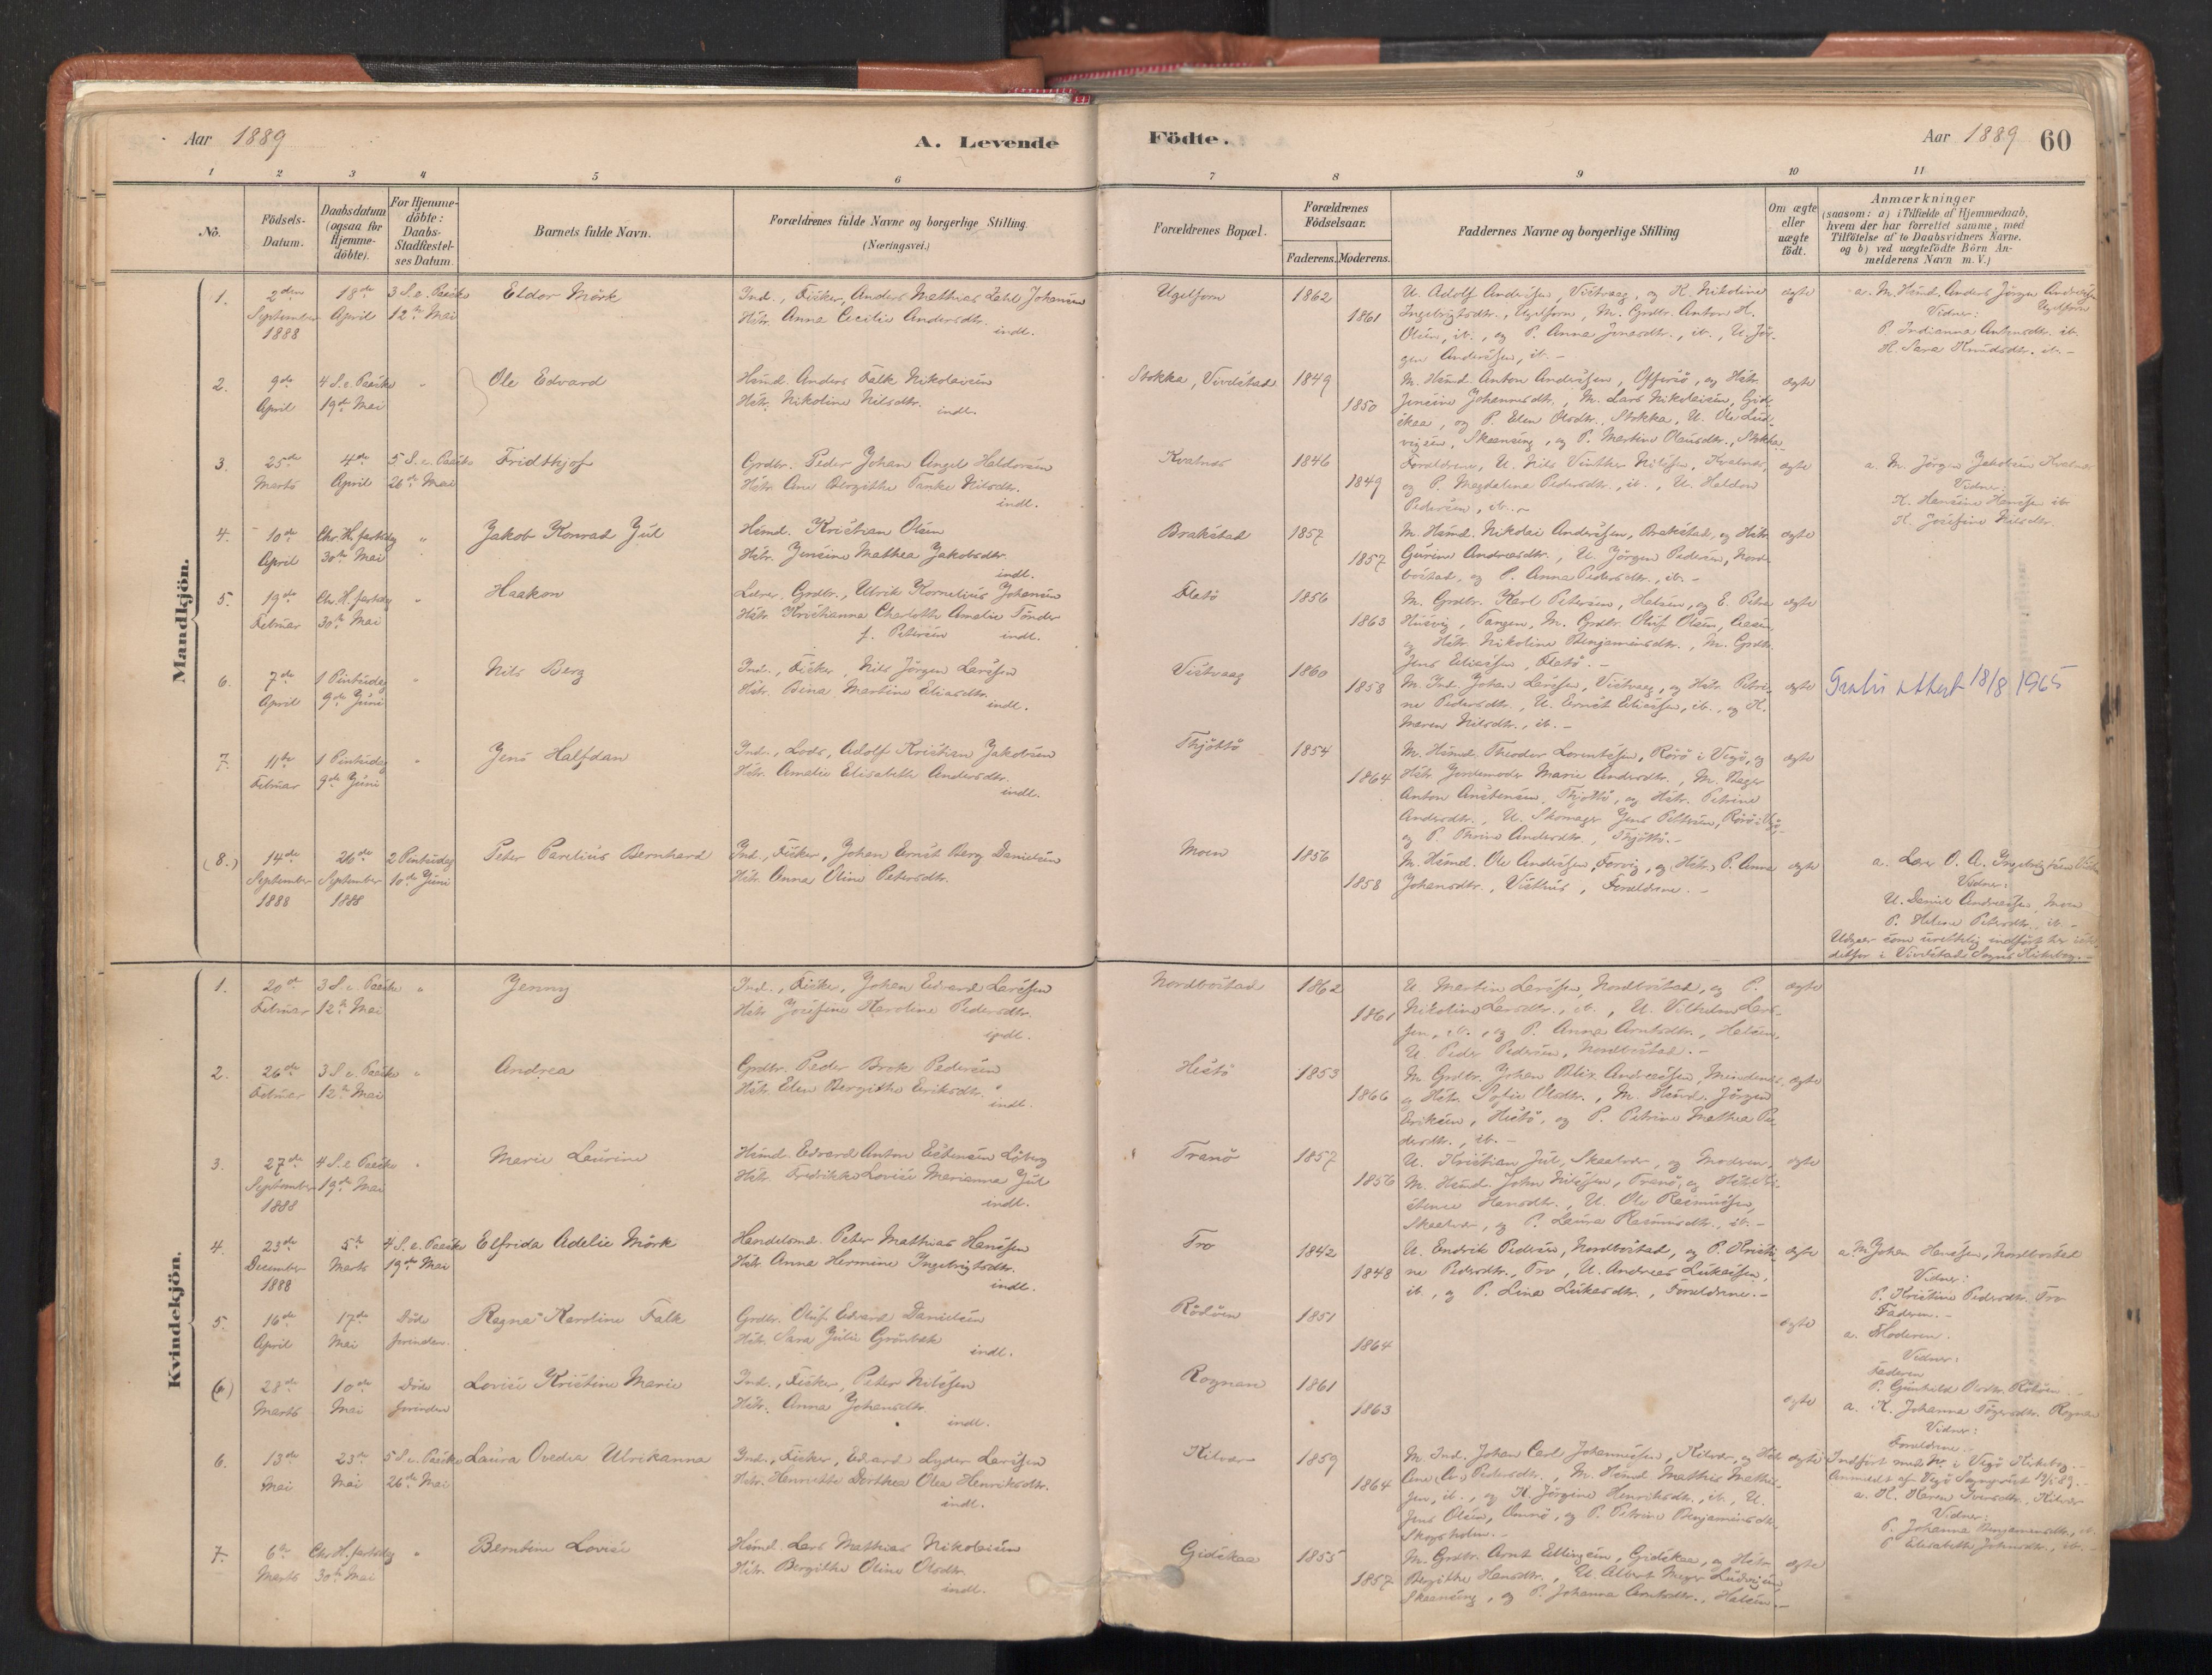 Aar 1889
A. Levende
Födte.
Aar 1889
60
1 2 3 4 5 6 7 8 9 10 11
No.
Födsels-Datum.
Daabsdatum (ogsaa for Hjemme-döbte).
For Hjemme-döbte: Daabs-Stadfæstel-ses Datum.
Barnets fulde Navn.
Forældrenes fulde Navne og borgerlige Stilling. (Næringsvei.)
Forældrenes Bopæl.
Forældrenes Födselsaar.
Faderens. Moderens.
Faddernes Navne og borgerlige Stilling
Om ægte eller uægte födt.
Anmærkninger
(saasom: a) i Tilfælde af Hjemmedaab, hvem der har forrettet samme, med Tilföielse af to Daabsvidners Navne, og b) ved uægtefödte Börn An-melderens Navn m. V.)
Mandkjön.
1. 2den September 1888
18de April
3 S. e. Paaske 12te Mai
Eldor Mörk
Ind., Fisker, Anders Mathias Johansen
Hstr. Anna Cecilie Andersdtr.
indl.
Ugelforn
1862
1861
U. Adolf Andersen, Vistvaag, og K. Nikoline
Ingebrigtsdtr., Ugelforn, M. Grdbr. Anton H.
Olsen, ib., og P. Anna Jensdtr., ib., U. Jör-
gen Andersen, ib. -
ægte
a. M. Hsmd. Anders Jörgen Andersen
Ugelforn
Vidner:
P. Indianna Antonsdtr. ib.
K. Sara Knudsdtr. ib. -
2. 9de April
4 S. e. Paaske 19de Mai
"
Ole Edvard
Hsmd. Anders Falk Nikolaisen
Hstr. Nikoline Nilsdtr.
indl.
Stokka, Vivelstad
1849
1850
M. Hsmd. Anton Andersen, Offersö, og Hstr.
Jensine Johannesdtr., M. Lars Nikolaisen, Gid-
skaa, og P. Elen Olsdtr., Stokka, U. Ole Lud-
vigsen, Skaanseng, og P. Martine Olausdtr., Stokka
ægte
3. 25de Marts
4de April
5 S. e. Paaske 26de Mai
Fridthjof
Grdbr. Peder Johan Angel Haldorsen
Hstr. Ane Bergithe Tanke Nilsdtr.
indl.
Kvalnes
1846
1849
Forældrene, U. Nils Vinther Nilssen, Kvalnes,
og P. Magdalena Pedersdtr., ib., U. Haldor
Pedersen, ib. -
ægte
a. M. Jörgen Jakobsen Kvalnes
Vidner:
K. Hansine Hansen ib
K. Josefine Nilsdtr.
4. 10de April
Chr. H. fartsdag 30te Mai
"
Jakob Konrad Jul
Hsmd. Kristian Olsen
Hstr. Jensine Mathea Jakobsdtr.
indl.
Brakstad
1857
1857
M. Hsmd. Nikolai Andersen, Brakstad, og Hstr.
Gurine Andreasdtr., U. Jörgen Pedersen, Nord-
bostad, og P. Anna Pedersdtr., ib. -
ægte
5. 19de Februar
Chr. H. fartsdag 30te Mai
"
Haakon
Lærer, Grdbr., Ulrik Kornelius Johansen
Hstr. Kristianna Charlotte Amalie Tönder
f. Petersen indl.
Flatö
1856
1863
M. Grdbr. Karl Petersen, Halsen, og E. Petra
Husvig, Tangen, M. Grdbr. Oluf Olsen,
og Hstr. Nikoline Benjaminsdtr., M. Grdbr.
Jens Eliassen, Flatö. -
ægte
6. 7de April
1 Pintsedag 9de Juni
"
Nils Berg
Ind., Fisker, Nils Jörgen Larssen
Hstr. Bina Martine Eliasdtr.
indl.
Vistvaag
1860
1858
M. Ind. Johan Larssen, Vistvaag, og Hstr. Petri-
ne Pedersdtr., U. Ernst Eliassen, ib., og K.
Maren Nilsdtr., ib. -
ægte
Gratis attest 18/8 1965
7. 11te Februar
1 Pintsedag 9de Juni
"
Jens Halfdan
Ind., Lods, Adolf Kristian Jakobsen
Hstr. Amalie Elisabeth Andersdtr.
indl.
Thjöttö
1854
1864
M. Hsmd. Theodor Lorentsen, Rörö i Vegö, og
Hstr. Jordemoder Marie Andersdtr., M. Bager
Anton Anstensen, Thjöttö, og Hstr. Petrine
Andersdtr., U. Skomager Jens Peltersen, Rörö i Vegö,
og P. Thrine Andersdtr., Thjöttö. -
ægte
(8.) 14de September 1888
26de September 1888
2 Pintsedag 10de Juni
Peter Parelius Bernhard
Ind., Fisker, Johan Ernst Berg Danielsen
Hstr. Anna Oline Petersdtr.
Moen
1856
1858
M. Hsmd. Ole Andersen, Forvig, og (Hstr.) P. Anna
Johansdtr., Visthus, Forældrene. -
ægte
a. Lærer O. A. Ingebrigtsen
Vidner:
U. Daniel Andreassen, Moen
P. Helene Petersdtr. ib. -
Udgaar som urettelig indfört her
i Vivelstad Sogns Kirkebog. -
Kvindekjön.
1. 20de Februar
3 S. e. Paaske 12te Mai
"
Jenny
Ind., Fisker, Johan Edvard Larssen
Hstr. Josefine Karoline Pedersdtr.
indl.
Nordbostad
1862
1861
U. Martin Larssen, Nordbostad, og P.
Nikoline Larsdtr., ib., U. Vilhelm Lars-
sen, ib., og P. Anna Arntsdtr., Halsen,
U. Peder Pedersen, Nordbostad. -
ægte
2. 26de Februar
3 S. e. Paaske 12te Mai
"
Andrea
Grdbr. Peder Brok Pedersen
Hstr. Elen Bergithe Eriksdtr.
indl.
Hestö
1853
1866
M. Grdbr. Johan Blix Andreassen, Mindenes,
og Hstr. Sofie Olsdtr., M. Hsmd. Jörgen
Eriksen, Hestö, og P. Petrine Mathea Pe-
dersdtr., ib. -
ægte
3. 27de September 1888
4 S. e. Paaske 19de Mai
"
Marie Laurine
Hsmd. Edvard Anton Estensen Löberg
Hstr. Fredrikke Lovise Marianna Jul
indl.
Tranö
1857
1856
U. Kristian Jul, Skaalvær, og Moderen,
M. Hsmd. John Nilssen, Tranö, og Hstr.
Hansdtr., U. Ole Rasmussen,
Skaalvær, og P. Laura Rasmusdtr., ib. -
ægte
4. 23de December 1888
5te Marts
4 S. e. Paaske 19de Mai
Elfrida Adelie Mörk
Handelsmd. Peter Mathias Hanssen
Hstr. Anna Hermine Ingebrigtsdtr.
indl.
Tro
1842
1848
U. Endrik Pedersen, Nordbostad, og P. Kristi-
ne Pedersdtr., Tro, U. Andreas Lukassen,
ib., og P. Lina Lukasdtr., Forældrene. -
ægte
a. M. Johan Hanssen, Nordbostad
Vidner:
P. Kristine Pedersdtr. Tro
Faderen. -
5. 16de April
17de Mai
Döde forinden.
Ragna Karoline Falk
Grdbr. Oluf Edvard Danielsen
Hstr. Sara Julie Grönbek
indl.
Rödöen
1851
1864
ægte
a. Moderen.
Vidner:
Faderen
P. Gunhild Olsdtr. Rödöen. -
(6) 28de Marts
10de Mai
Döde forinden
Lovise Kristine Marie
Ind., Fisker, Peter Nilssen
Hstr. Anna Johansdtr.
indl.
Rognan
1861
1863
ægte
a. K. Johanna Tögersdtr. Rognan
Vidner:
Forældrene. -
6. 13de Mai
23de Mai
5 S. e. Paaske 26de Mai
Laura Ovedia Ulrikanna
Ind., Fisker, Edvard Lyder Larssen
Hstr. Henriette Dorthea Olea Henriksdtr.
indl.
Kilvær
1859
1864
M. Ind. Johan Carl Johannessen, Kilvær, og Hstr.
Pedersdtr., M. Hsmd. Mathis Mathis-
sen, ib., og K. Jörgine Henriksdtr., ib., U.
Jens Olsen, Omnö, og P. Petrine Benjaminsdtr.,
Skogsholm. -
ægte
Indfört med No. i Vegö Kirkebog. -
Anmeldt af Vegö Sogneprest
a. K. Karen Iversdtr. Kilvær
Vidner:
P. Johanna Benjaminsdtr., ib.
P. Elisabeth Johnsdtr., ib. -
7. 6te Marts
Chr. H. fartsdag 30te Mai
"
Berntine Lovise
Hsmd. Lars Mathias Nikolaisen
Hstr. Bergithe Oline Olsdtr.
indl.
Gidskaa
1855
1857
M. Grdbr. Arnt Ellingsen, Gidskaa, og Hstr.
Bergithe Hansdtr., U. Albert Meyer Ludvigsen
Skaanseng, og P. Johanna Arntsdtr., Halsen. -
ægte